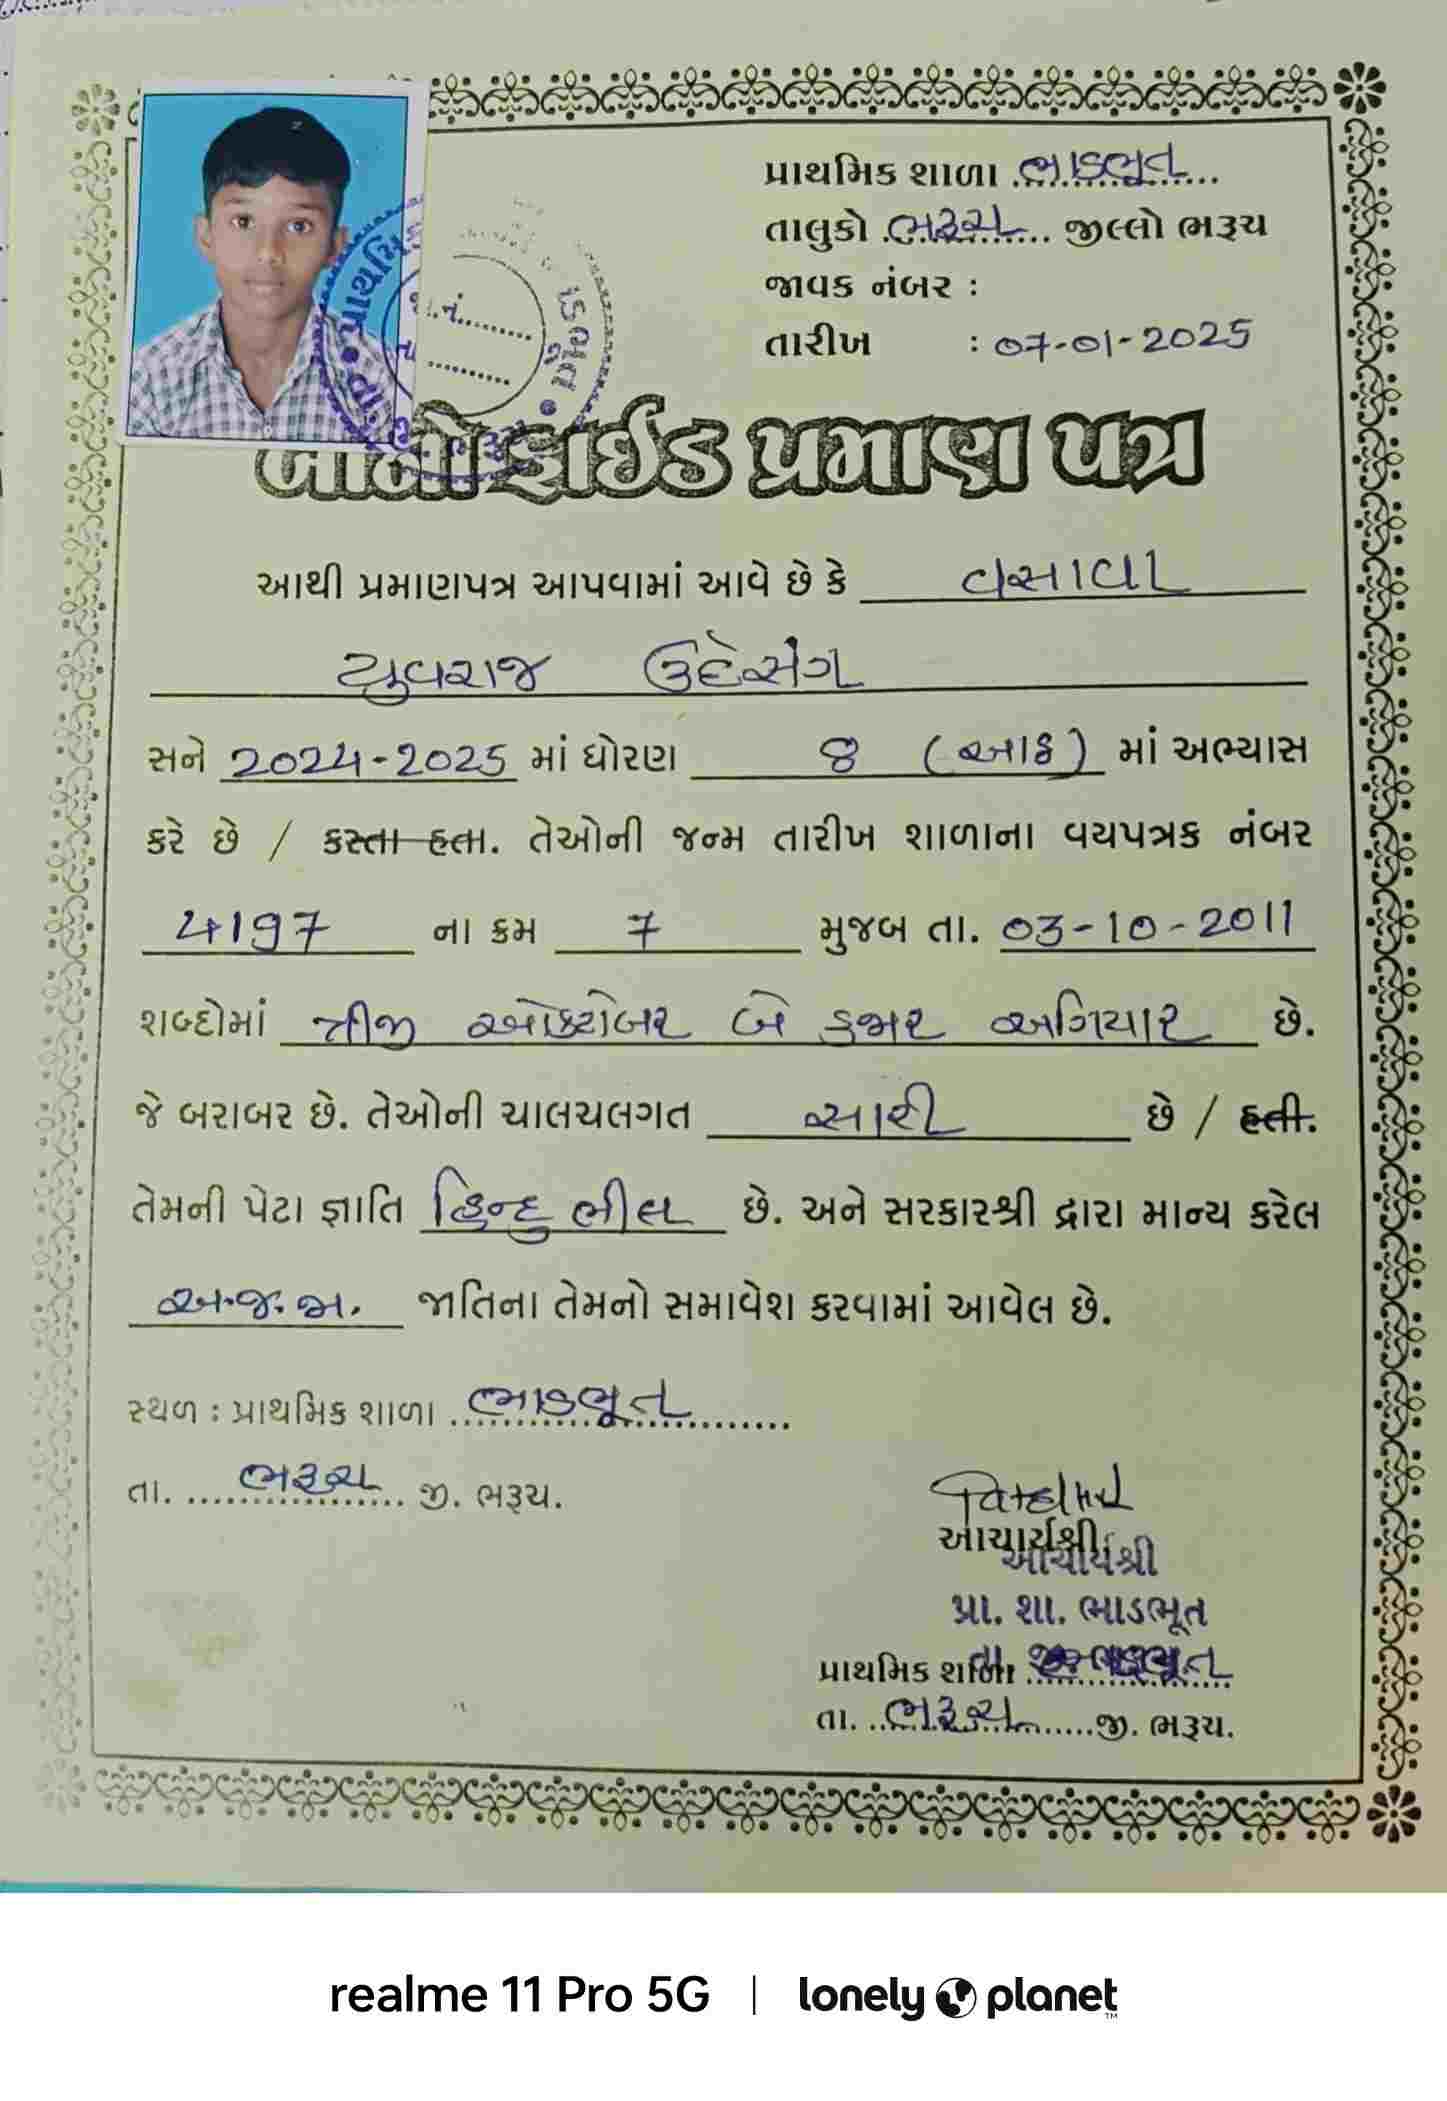 પ્રાથમિક શાળા ભાડભૂત
તાલુકો ભરૂચ જીલ્લો ભરૂચ
જાવક નંબર :
તારીખ : ૦7-૦1-2૦25
જા.નં.........
તા..........
ભાડભૂત
બોનોફાઈડ પ્રમાણ પત્ર
આથી પ્રમાણપત્ર આપવામાં આવે છે કે વસાવા
યુવરાજ ઉદેસંગ
સને 2024-2025 માં ધોરણ 8 (આઠ) માં અભ્યાસ
કરે છે / કરતા હતા. તેઓની જન્મ તારીખ શાળાના વયપત્રક નંબર
4197 ના ક્રમ 7 મુજબ તા. 03-10-2011
શબ્દોમાં ત્રીજી ઓક્ટોબર બે હજાર અગિયાર છે.
જે બરાબર છે. તેઓની ચાલચલગત સારી છે / હતી.
તેમની પેટા જ્ઞાતિ હિન્દુ ભીલ છે. અને સરકારશ્રી દ્વારા માન્ય કરેલ
અ.જ.જા. જાતિના તેમનો સમાવેશ કરવામાં આવેલ છે.
સ્થળ : પ્રાથમિક શાળા ભાડભૂત
તા. ભરૂચ જી. ભરૂચ.
આચાર્યશ્રી
આચાર્યશ્રી
પ્રા. શા. ભાડભૂત
પ્રાથમિક શાળા ભાડભૂત
તા. ભરૂચ જી. ભરૂચ.
realme 11 Pro 5G | lonely planet